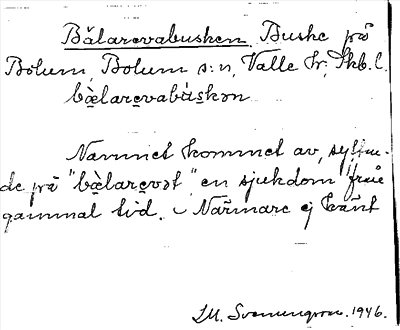 Bälarevabusken. Buske på
Bolum, Bolum s:n, Valle hr, Skb. l.
bä̀larevabùskən
Namnet kommet av, syftan-
de på "bä̀larevət", en sjukdom från
gammal tid. – Närmare ej känt
M. Svenungson. 1946.